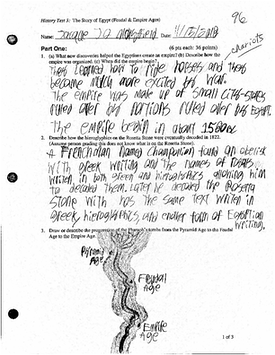 96
History Test 3: The Story of Egypt (Feudal & Empire Ages)
Name: Date:
Part One: (6 pts each: 36 points)
chariots
1. (a) What new discoveries helped the Egyptians create an empire? (b) Describe how the empire was organized. (c) When did the empire begin?
They learned how to ride horses and they
became much more excited for war.
The empire was made up of small city-states
ruled over by
The empire began in about 1580 BC
2. Describe how the hieroglyphics on the Rosetta Stone were eventually decoded in 1822.
(Assume person grading this does not know what is on the Rosetta Stone).
A Frenchman named Champollion found an obelisk
with greek writing and the names of
writen in both greek and hieroglyphics allowing him
to decode them. Later he decoded the Rosetta
stone with has the same text writen in
Greek, hieroglyphics, and another form of Egyptian
writing.
3. Draw or describe the progression of the Pharaoh's tombs from the Pyramid Age to the Feudal Age to the Empire Age.
Pyramid
Age
Feudal
Age
Empire
Age
1 of 3